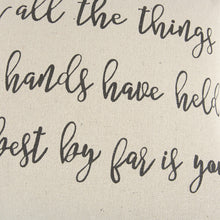 all the things
hands have hel
best by far is you